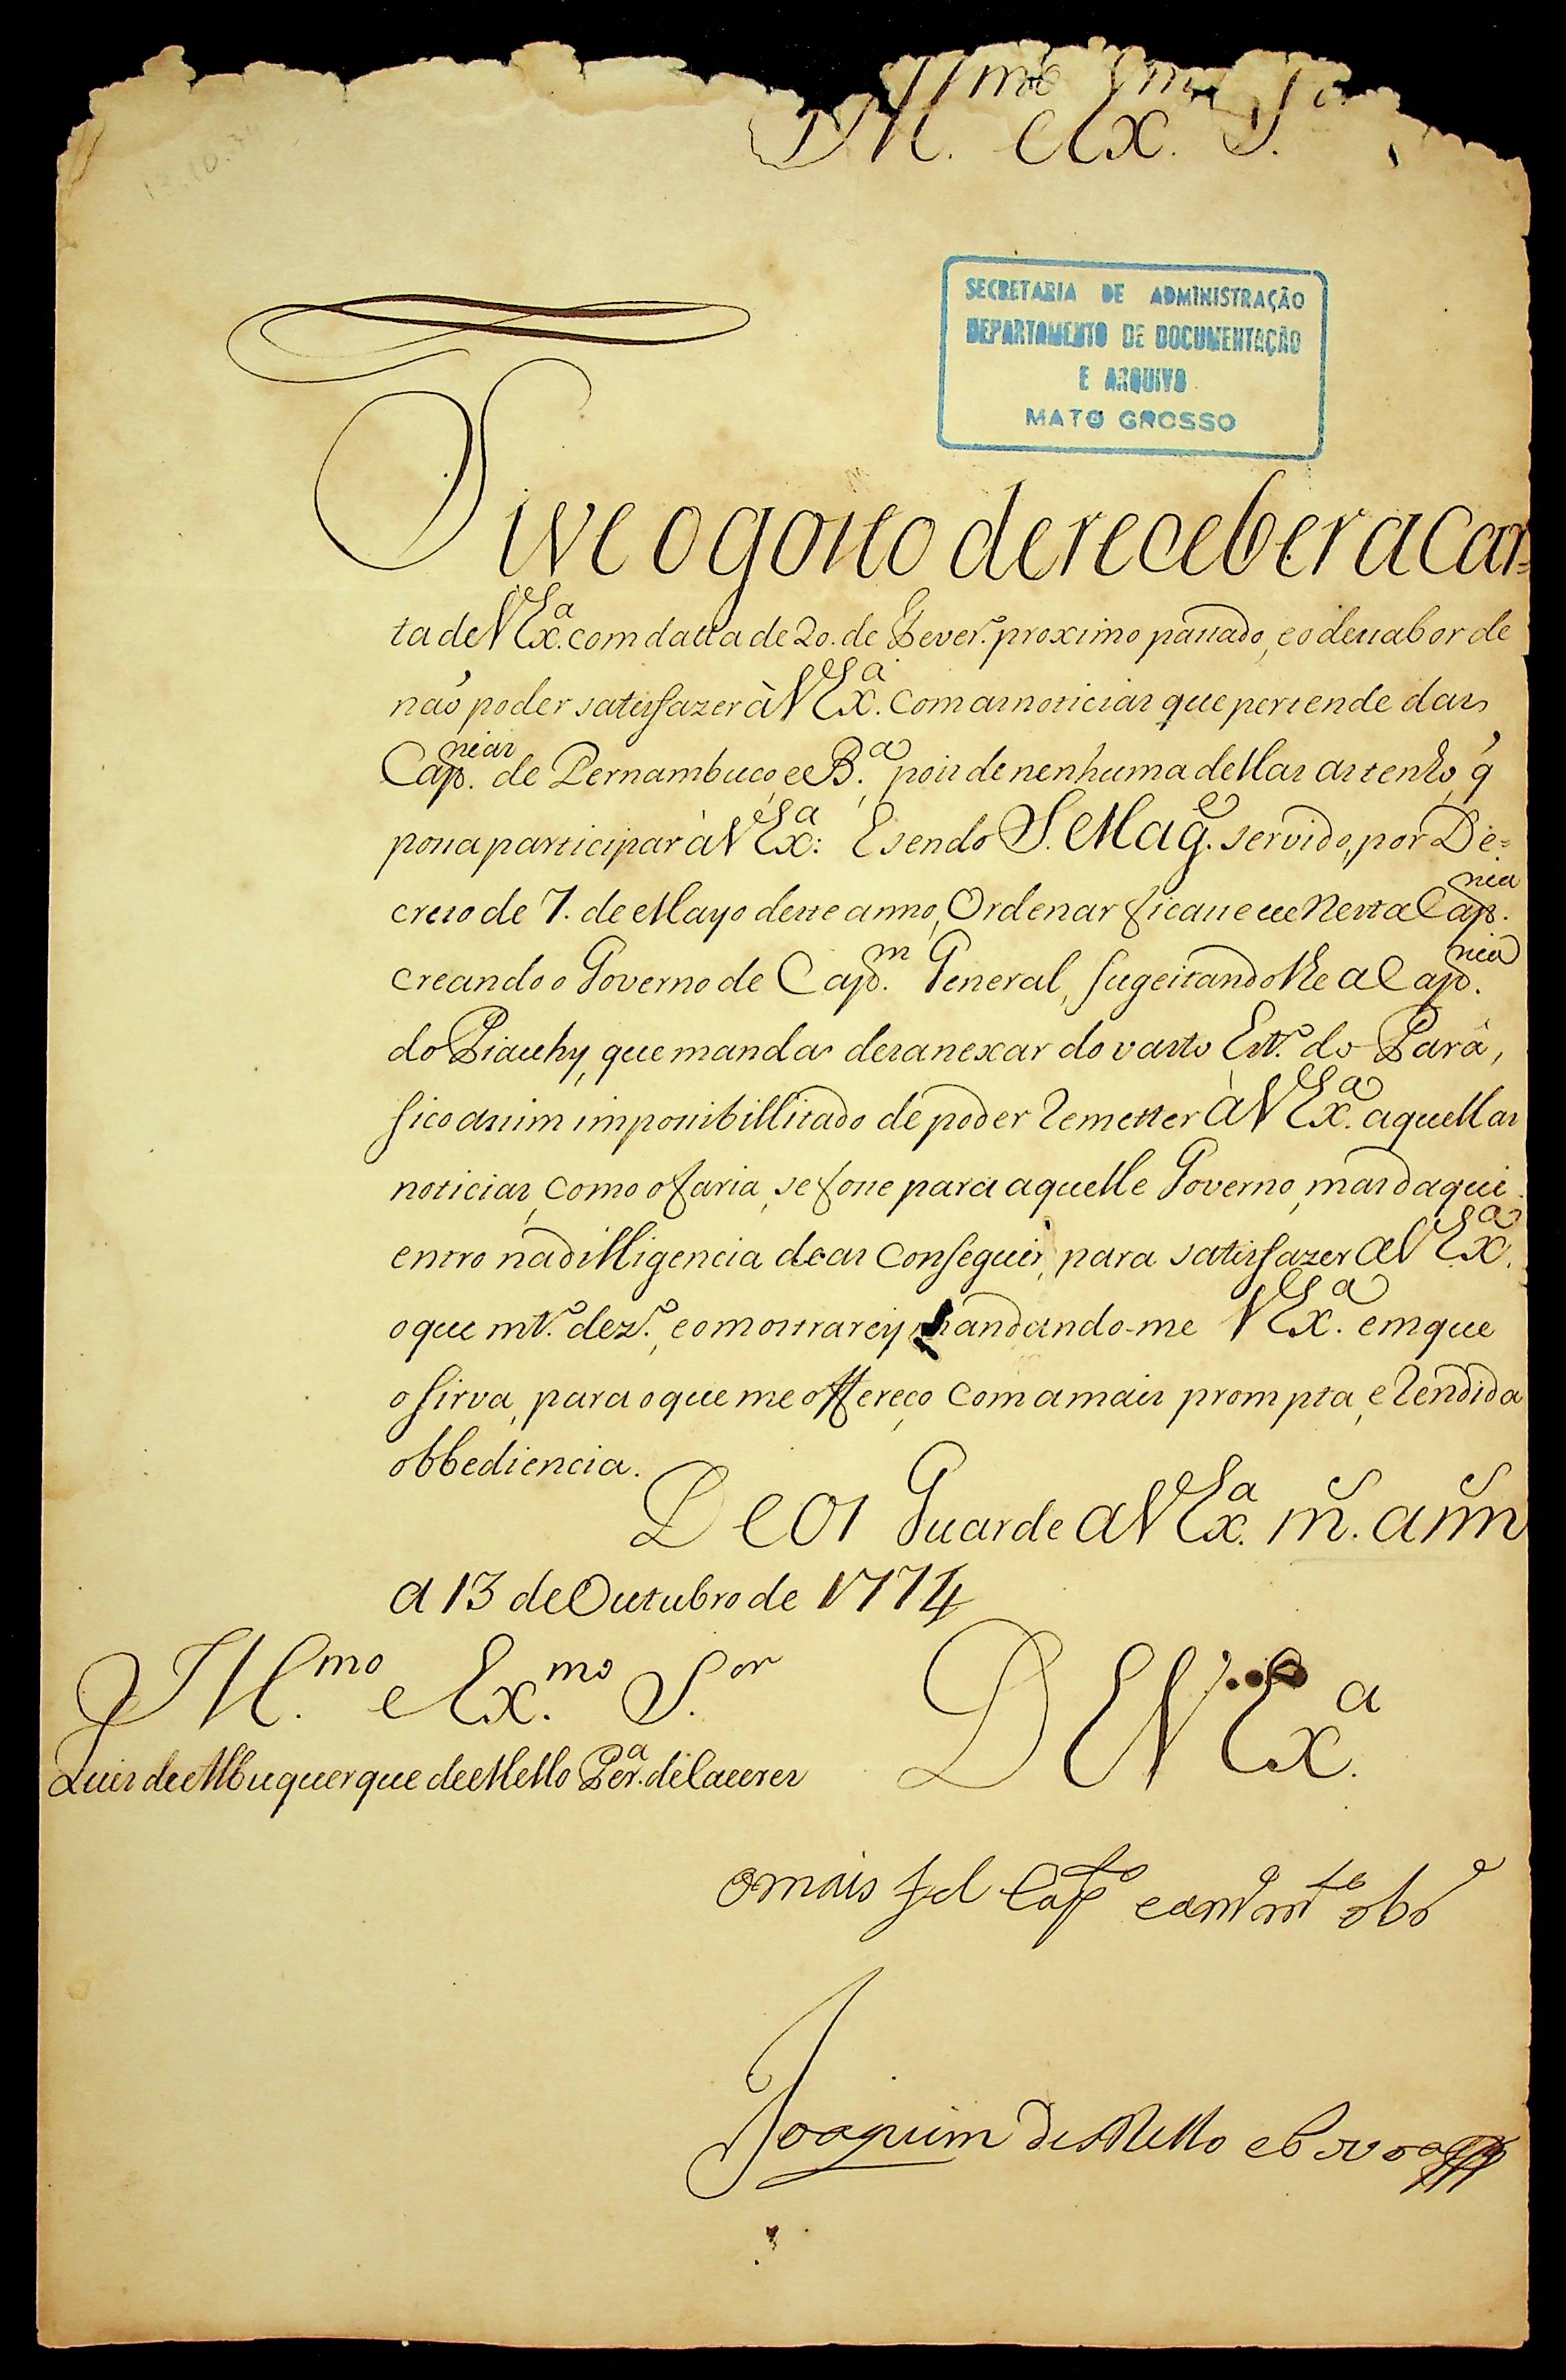 Ill.mo e Ex.mo S.or
SECRETARIA DE ADMINISTRAÇÃO
DEPARTAMENTO DE DOCUMENTAÇÃO
E ARQUIVO
MATO GROSSO
Tive o gosto de receber a Car=
ta de V Ex.a com datta de 20. de Fever.o proximo passado, e o dessabor de
naõ poder satisfazer à V Ex.a com as noticias que pertende das
Cap.nias de Pernambuco, e B.a, pois de nenhuma dellas as tenho, q̃
possa participar à V Ex.a: E sendo S. Mag.e servido, por De=
creto de 7. de Mayo deste anno, Ordenar ficasse eu Nesta Cap.nia
creando o Governo de Cap.m General, sugeitandolhe a Cap.nia
do Piauhy, que manda desanexar do vasto Est.o do Pará,
fico assim impossibillitado de poder Remetter à V Ex.a aquellas
noticias, como o faria, se fosse para aquelle Governo, mas daqui
entro na dilligencia de as conseguir, para satisfazer a V Ex.a
o que mt.o dez.o, e o mostrarey mandando-me V Ex.a em que
o sirva, para o que me offereço com a mais prompta, e Rendida
obbediencia.
Deos Guarde a V Ex.a m.s ann
a 13 de Outubro de 1774
Ill.mo e Ex.mo S.or
DE V Ex.a
Luis de Albuquerque de Mello Per.a de Caceres
o mais fiel Cap.to e am.o m.to obr.o
Joaquim de Mello e Povoas